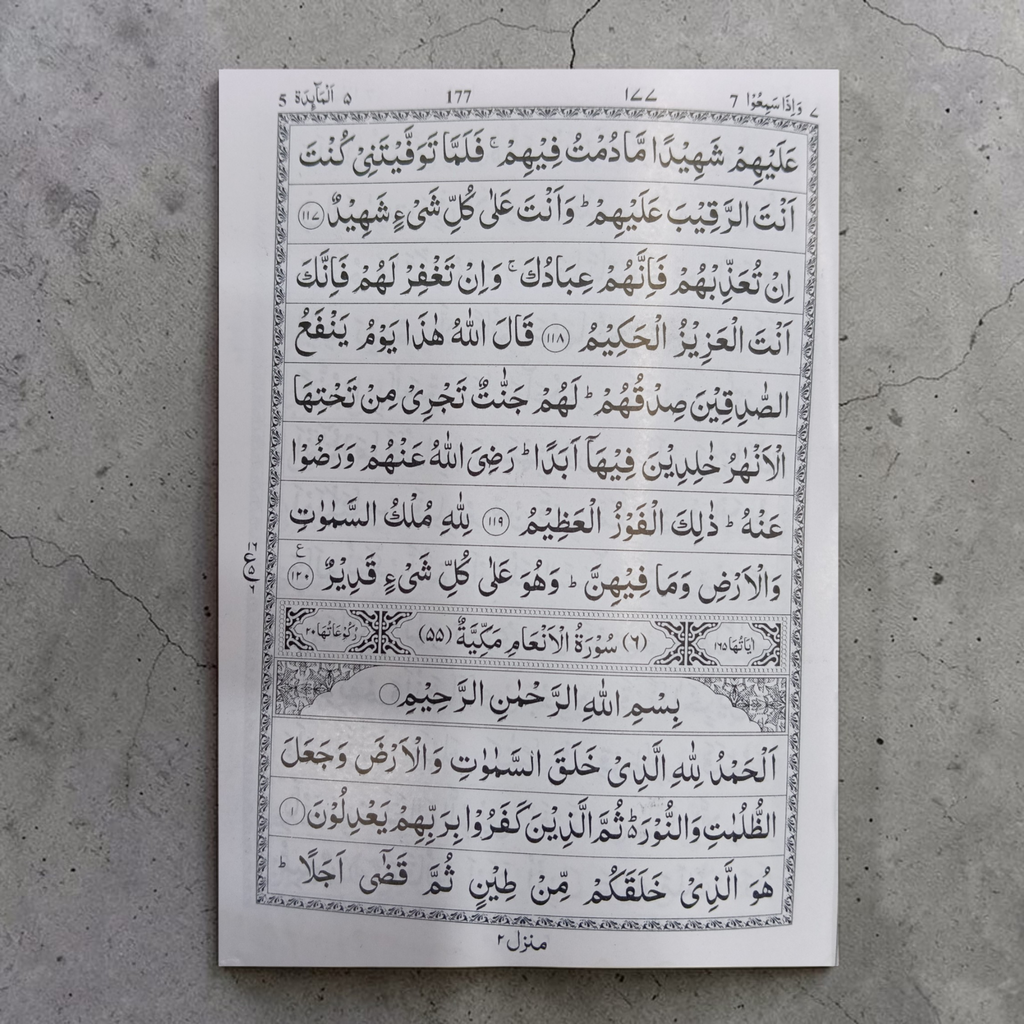 ٧ وَاِذَا سَمِعُوْا 7 ١٧٧ 177 ٥ اَلْمَآئِدَة 5
عَلَيْهِمْ شَهِيْدًا مَّا دُمْتُ فِيْهِمْ ۚ فَلَمَّا تَوَفَّيْتَنِيْ كُنْتَ
اَنْتَ الرَّقِيْبَ عَلَيْهِمْ ؕ وَاَنْتَ عَلٰى كُلِّ شَيْءٍ شَهِيْدٌ ﴿١١٧﴾
اِنْ تُعَذِّبْهُمْ فَاِنَّهُمْ عِبَادُكَ ۚ وَاِنْ تَغْفِرْ لَهُمْ فَاِنَّكَ
اَنْتَ الْعَزِيْزُ الْحَكِيْمُ ﴿١١٨﴾ قَالَ اللّٰهُ هٰذَا يَوْمُ يَنْفَعُ
الصّٰدِقِيْنَ صِدْقُهُمْ ؕ لَهُمْ جَنّٰتٌ تَجْرِيْ مِنْ تَحْتِهَا
الْاَنْهٰرُ خٰلِدِيْنَ فِيْهَآ اَبَدًا ؕ رَضِيَ اللّٰهُ عَنْهُمْ وَرَضُوْا
عَنْهُ ؕ ذٰلِكَ الْفَوْزُ الْعَظِيْمُ ﴿١١٩﴾ لِلّٰهِ مُلْكُ السَّمٰوٰتِ
وَالْاَرْضِ وَمَا فِيْهِنَّ ؕ وَهُوَ عَلٰى كُلِّ شَيْءٍ قَدِيْرٌ ﴿١٢٠﴾ ع
اٰيَاتُهَا ١٦٥ (٦) سُوْرَةُ الْاَنْعَامِ مَكِّيَّةٌ (٥٥) رُكُوْعَاتُهَا ٢٠
بِسْمِ اللّٰهِ الرَّحْمٰنِ الرَّحِيْمِ
اَلْحَمْدُ لِلّٰهِ الَّذِيْ خَلَقَ السَّمٰوٰتِ وَالْاَرْضَ وَجَعَلَ
الظُّلُمٰتِ وَالنُّوْرَ ؕ۬ ثُمَّ الَّذِيْنَ كَفَرُوْا بِرَبِّهِمْ يَعْدِلُوْنَ ﴿١﴾
هُوَ الَّذِيْ خَلَقَكُمْ مِّنْ طِيْنٍ ثُمَّ قَضٰٓى اَجَلًا ؕ
منزل ٢